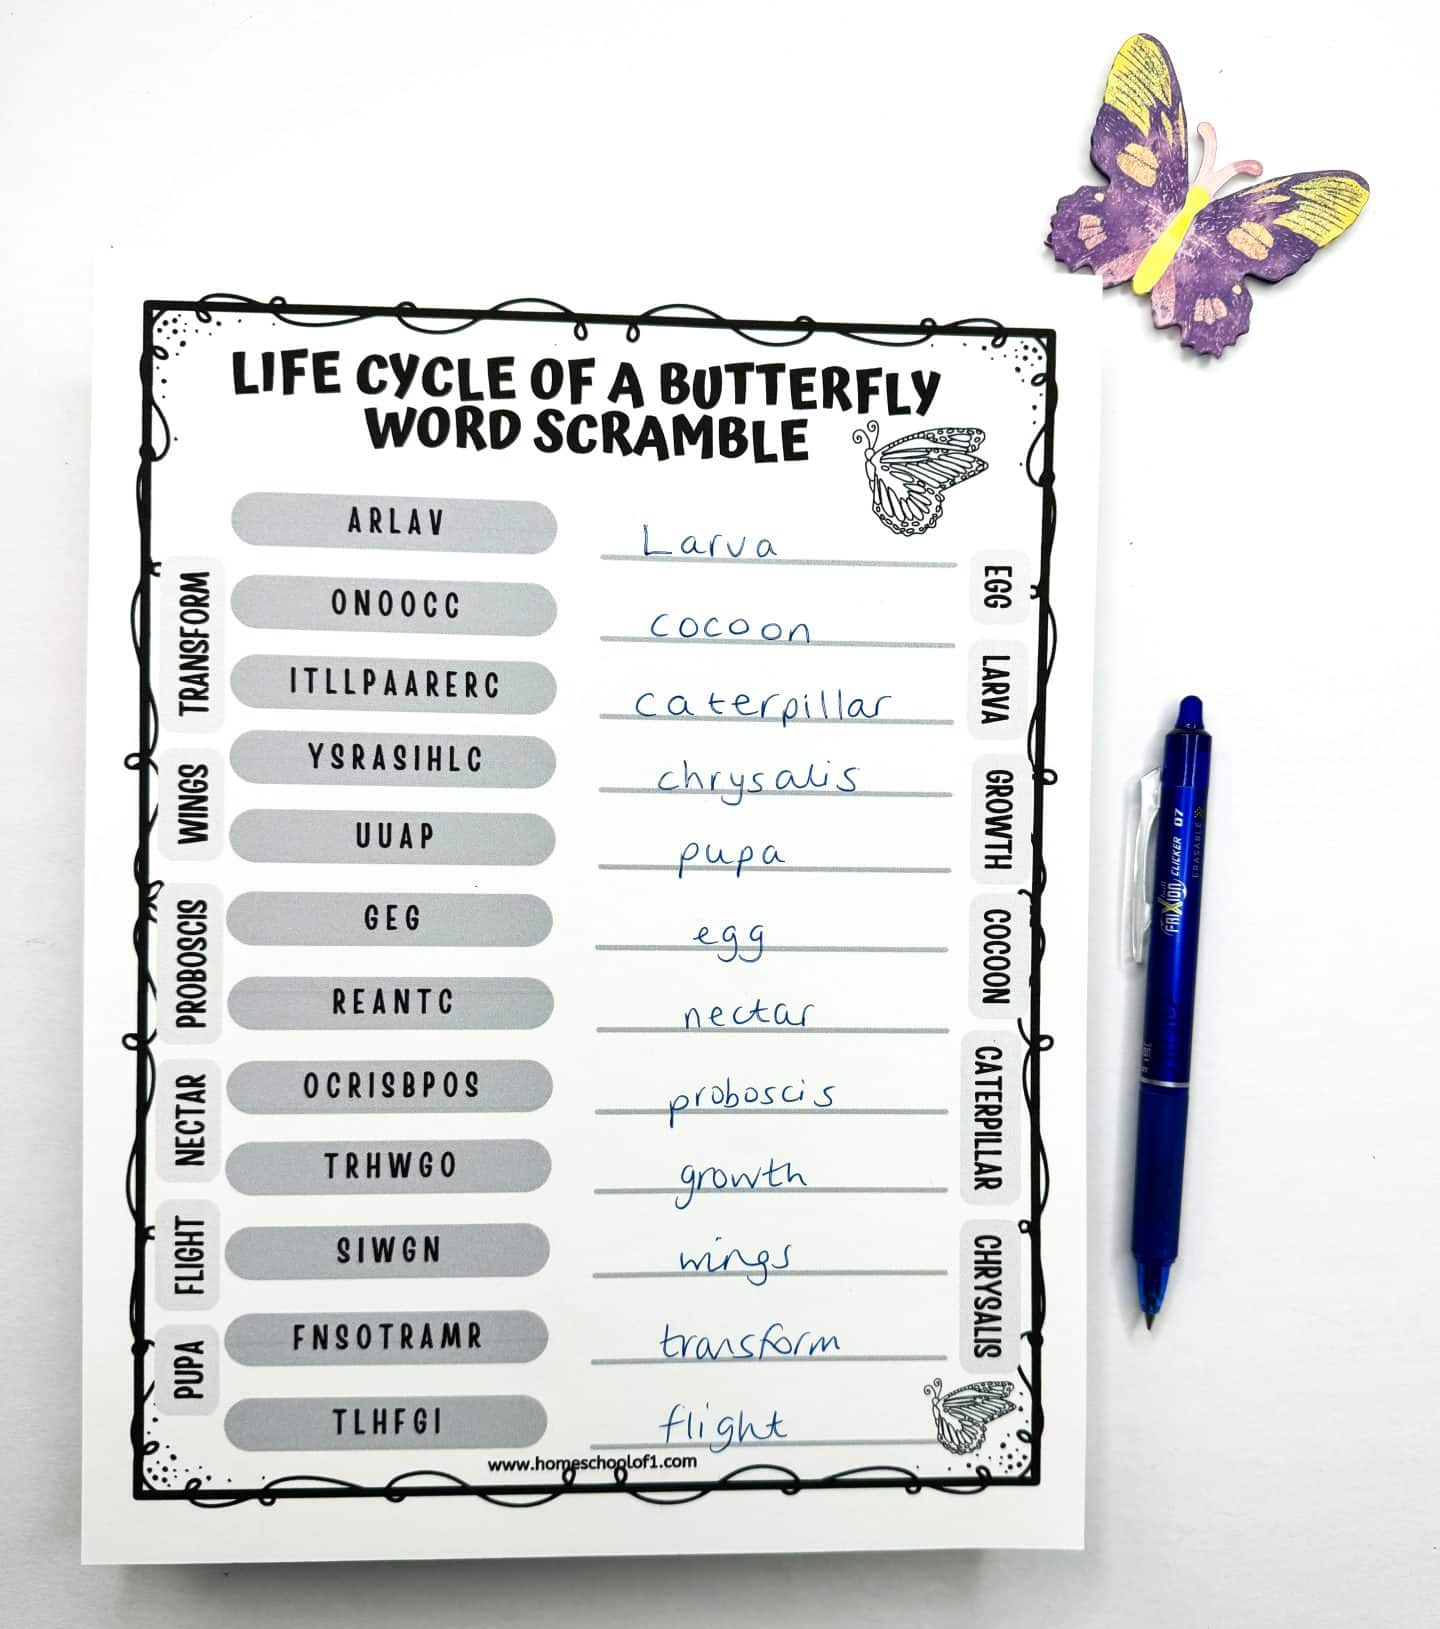 LIFE CYCLE OF A BUTTERFLY
WORD SCRAMBLE
ARLAV Larva
ONOOCC cocoon
ITLLPAARERC caterpillar
YSRASIHLC chrysalis
UUAP pupa
GEG egg
REANTC nectar
OCRISBPOS proboscis
TRHWGO growth
SIWGN wings
FNSOTRAMR transform
TLHFGI flight
TRANSFORM
WINGS
PROBOSCIS
NECTAR
FLIGHT
PUPA
EGG
LARVA
GROWTH
COCOON
CATERPILLAR
CHRYSALIS
www.homeschoolof1.com
FRIXION CLICKER 07
ERASABLE